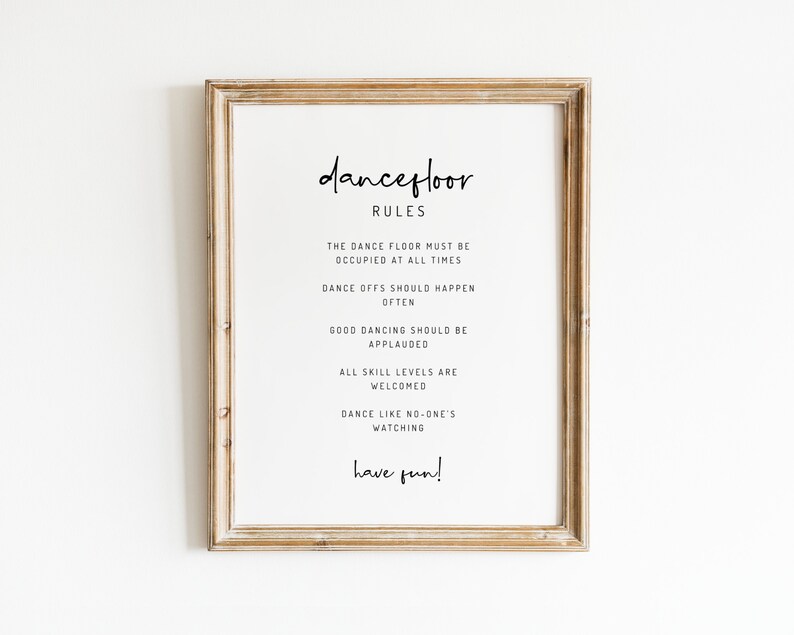 dancefloor
RULES
THE DANCE FLOOR MUST BE
OCCUPIED AT ALL TIMES
DANCE OFFS SHOULD HAPPEN
OFTEN
GOOD DANCING SHOULD BE
APPLAUDED
ALL SKILL LEVELS ARE
WELCOMED
DANCE LIKE NO-ONE'S
WATCHING
have fun!